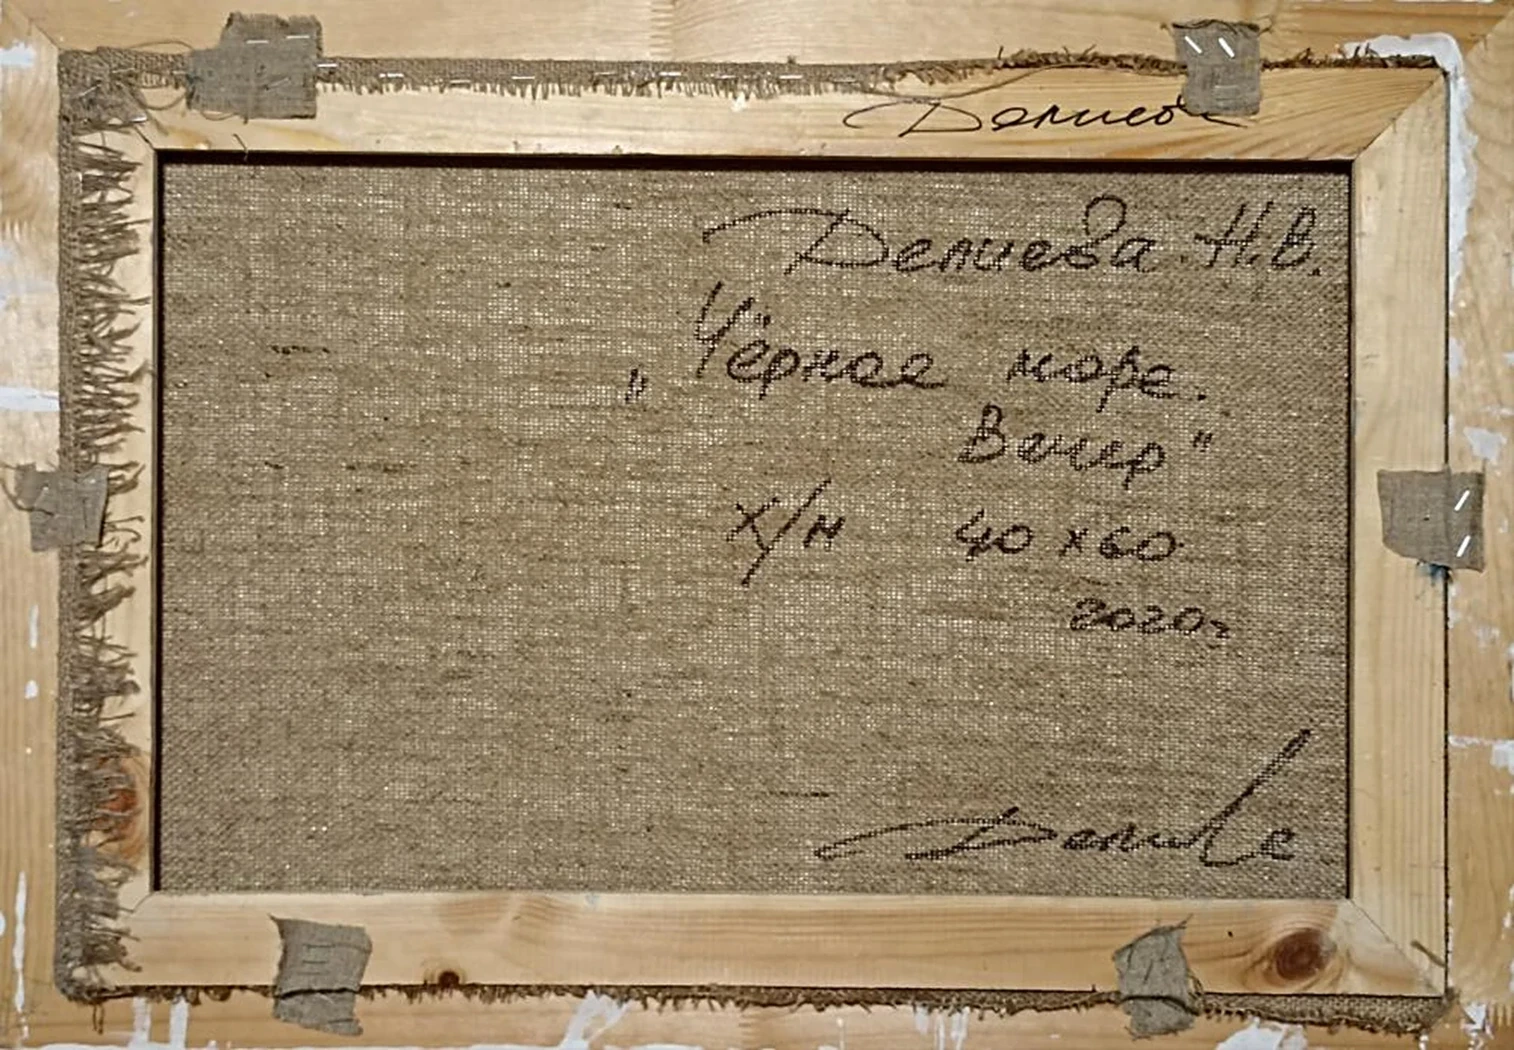 Делиев
Делиева Н.В.
„Чёрное море.
Вечер"
х/м 40 х 60
2020г
Делиев